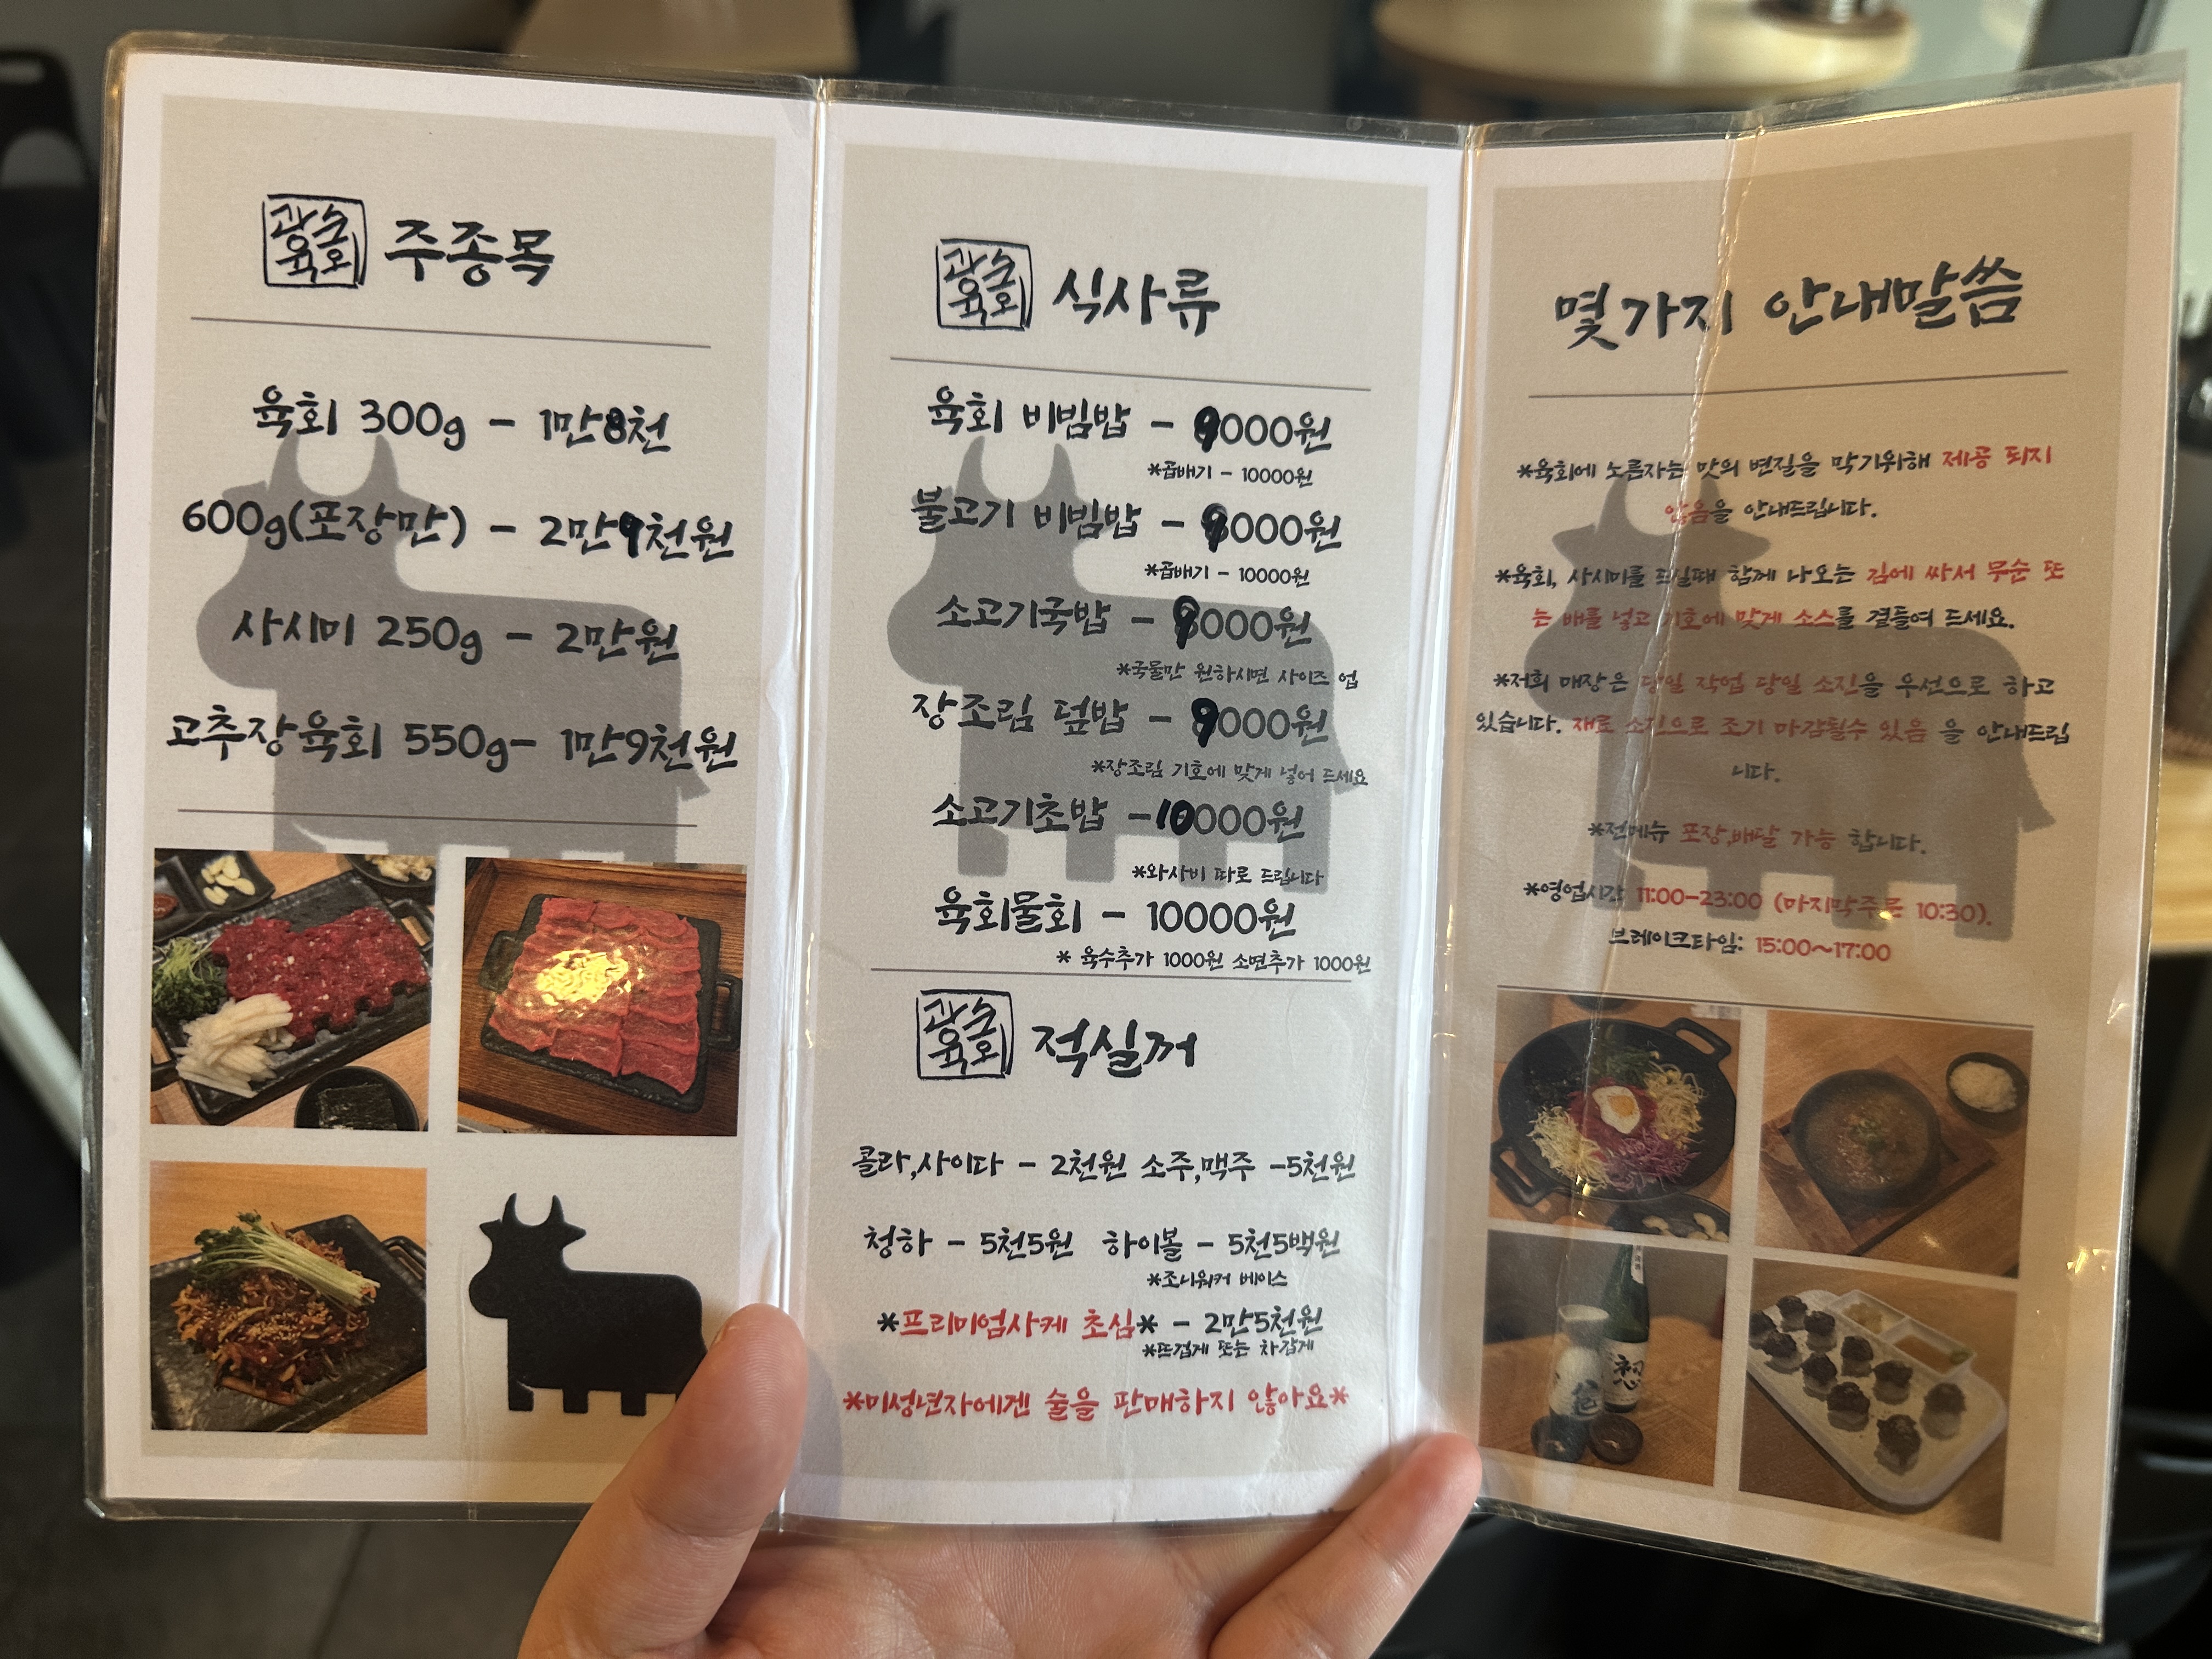 광순
육회
주종목
육회 300g - 1만8천
600g(포장만) - 2만9천원
사시미 250g - 2만원
고추장육회 550g- 1만9천원
광순
육회
식사류
육회 비빔밥 - 9000원
*곱배기 - 10000원
불고기 비빔밥 - 9000원
*곱배기 - 10000원
소고기국밥 - 9000원
*국물만 원하시면 사이즈 업
장조림 덮밥 - 9000원
*장조림 기호에 맞게 넣어 드세요
소고기초밥 -10000원
*와사비 따로 드립니다
육회물회 - 10000원
* 육수추가 1000원 소면추가 1000원
광순
육회
적실꺼
콜라,사이다 - 2천원 소주,맥주 -5천원
청하 - 5천5원 하이볼 - 5천5백원
*조니워커 베이스
*프리미엄사케 초심* - 2만5천원
*뜨겁게 또는 차갑게
*미성년자에겐 술을 판매하지 않아요*
몇가지 안내말씀
*육회에 노른자는 맛의 변질을 막기위해 제공 되지
않음을 안내드립니다.
*육회, 사시미를 드실때 함께 나오는 김에 싸서 무순 또
는 배를 넣고 기호에 맞게 소스를 곁들여 드세요.
*저희 매장은 당일 작업 당일 소진을 우선으로 하고
있습니다. 재료 소진으로 조기 마감될수 있음 을 안내드립
니다.
*전메뉴 포장,배달 가능 합니다.
*영업시간 11:00-23:00 (마지막주문 10:30).
브레이크타임: 15:00~17:00
初